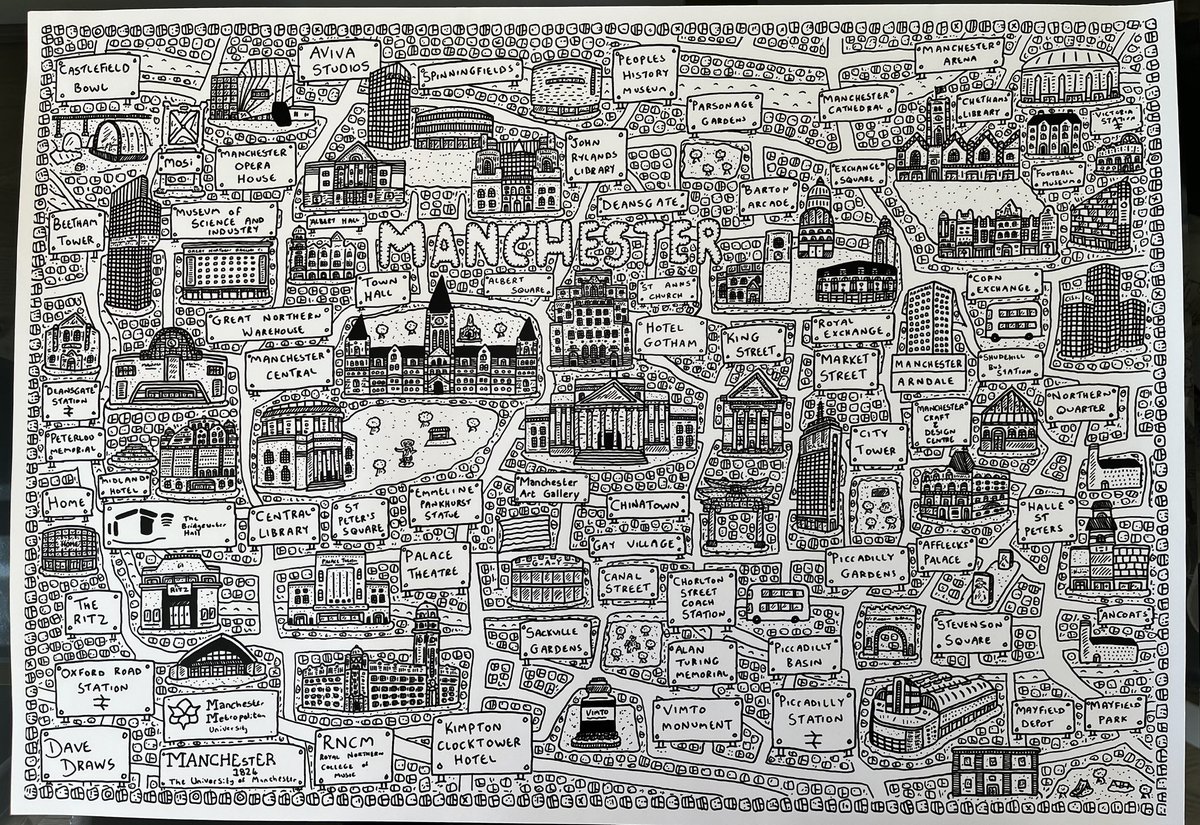 CASTLEFIELD
BOWL
AVIVA
STUDIOS
SPINNINGFIELDS
PEOPLES
HISTORY
MUSEUM
MANCHESTER
ARENA
PARSONAGE
GARDENS
MANCHESTER
CATHEDRAL
CHETHAMS
LIBRARY
VICTORIA
STATION
MOSI
MANCHESTER
OPERA
HOUSE
JOHN
RYLANDS
LIBRARY
EXCHANGE
SQUARE
FOOTBALL
MUSEUM
BEETHAM
TOWER
MUSEUM OF
SCIENCE AND
INDUSTRY
ALBERT HALL
DEANSGATE
BARTON
ARCADE
MANCHESTER
TOWN
HALL
ALBERT
SQUARE
ST ANNS
CHURCH
CORN
EXCHANGE
GREAT NORTHERN
WAREHOUSE
HOTEL
GOTHAM
KING
STREET
ROYAL
EXCHANGE
MANCHESTER
CENTRAL
MARKET
STREET
MANCHESTER
ARNDALE
SHUDEHILL
BUS
STATION
DEANSGATE
STATION
NORTHERN
QUARTER
MANCHESTER
CRAFT
&
DESIGN
CENTRE
PETERLOO
MEMORIAL
CITY
TOWER
MIDLAND
HOTEL
HOME
The
Bridgewater
Hall
CENTRAL
LIBRARY
ST
PETER'S
SQUARE
EMMELINE
PANKHURST
STATUE
MANCHESTER
ART GALLERY
CHINATOWN
HALLE
ST
PETERS
GAY VILLAGE
PALACE
THEATRE
PICCADILLY
GARDENS
AFFLECKS
PALACE
HOME
PALACE THEATRE
G-A-Y
CANAL
STREET
CHORLTON
STREET
COACH
STATION
THE
RITZ
RITZ
SACKVILLE
GARDENS
STEVENSON
SQUARE
ANCOATS
ALAN
TURING
MEMORIAL
PICCADILLY
BASIN
OXFORD ROAD
STATION
Manchester
Metropolitan
University
VIMTO
VIMTO
MONUMENT
PICCADILLY
STATION
MAYFIELD
DEPOT
MAYFIELD
PARK
DAVE
DRAWS
MANCHESTER
1824
The University of Manchester
RNCM
ROYAL NORTHERN
COLLEGE OF
MUSIC
KIMPTON
CLOCKTOWER
HOTEL